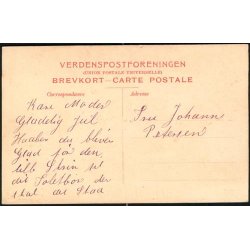 VERDENSPOSTFORENINGEN
(UNION POSTALE UNIVERSELLE)
BREVKORT—CARTE POSTALE
Correspondance.
Adresse.
Kære Moder
Glædelig Jul
Haaber du bliver
Glad for den
lille
til
dit
skal
Frue Johanne
Petersen